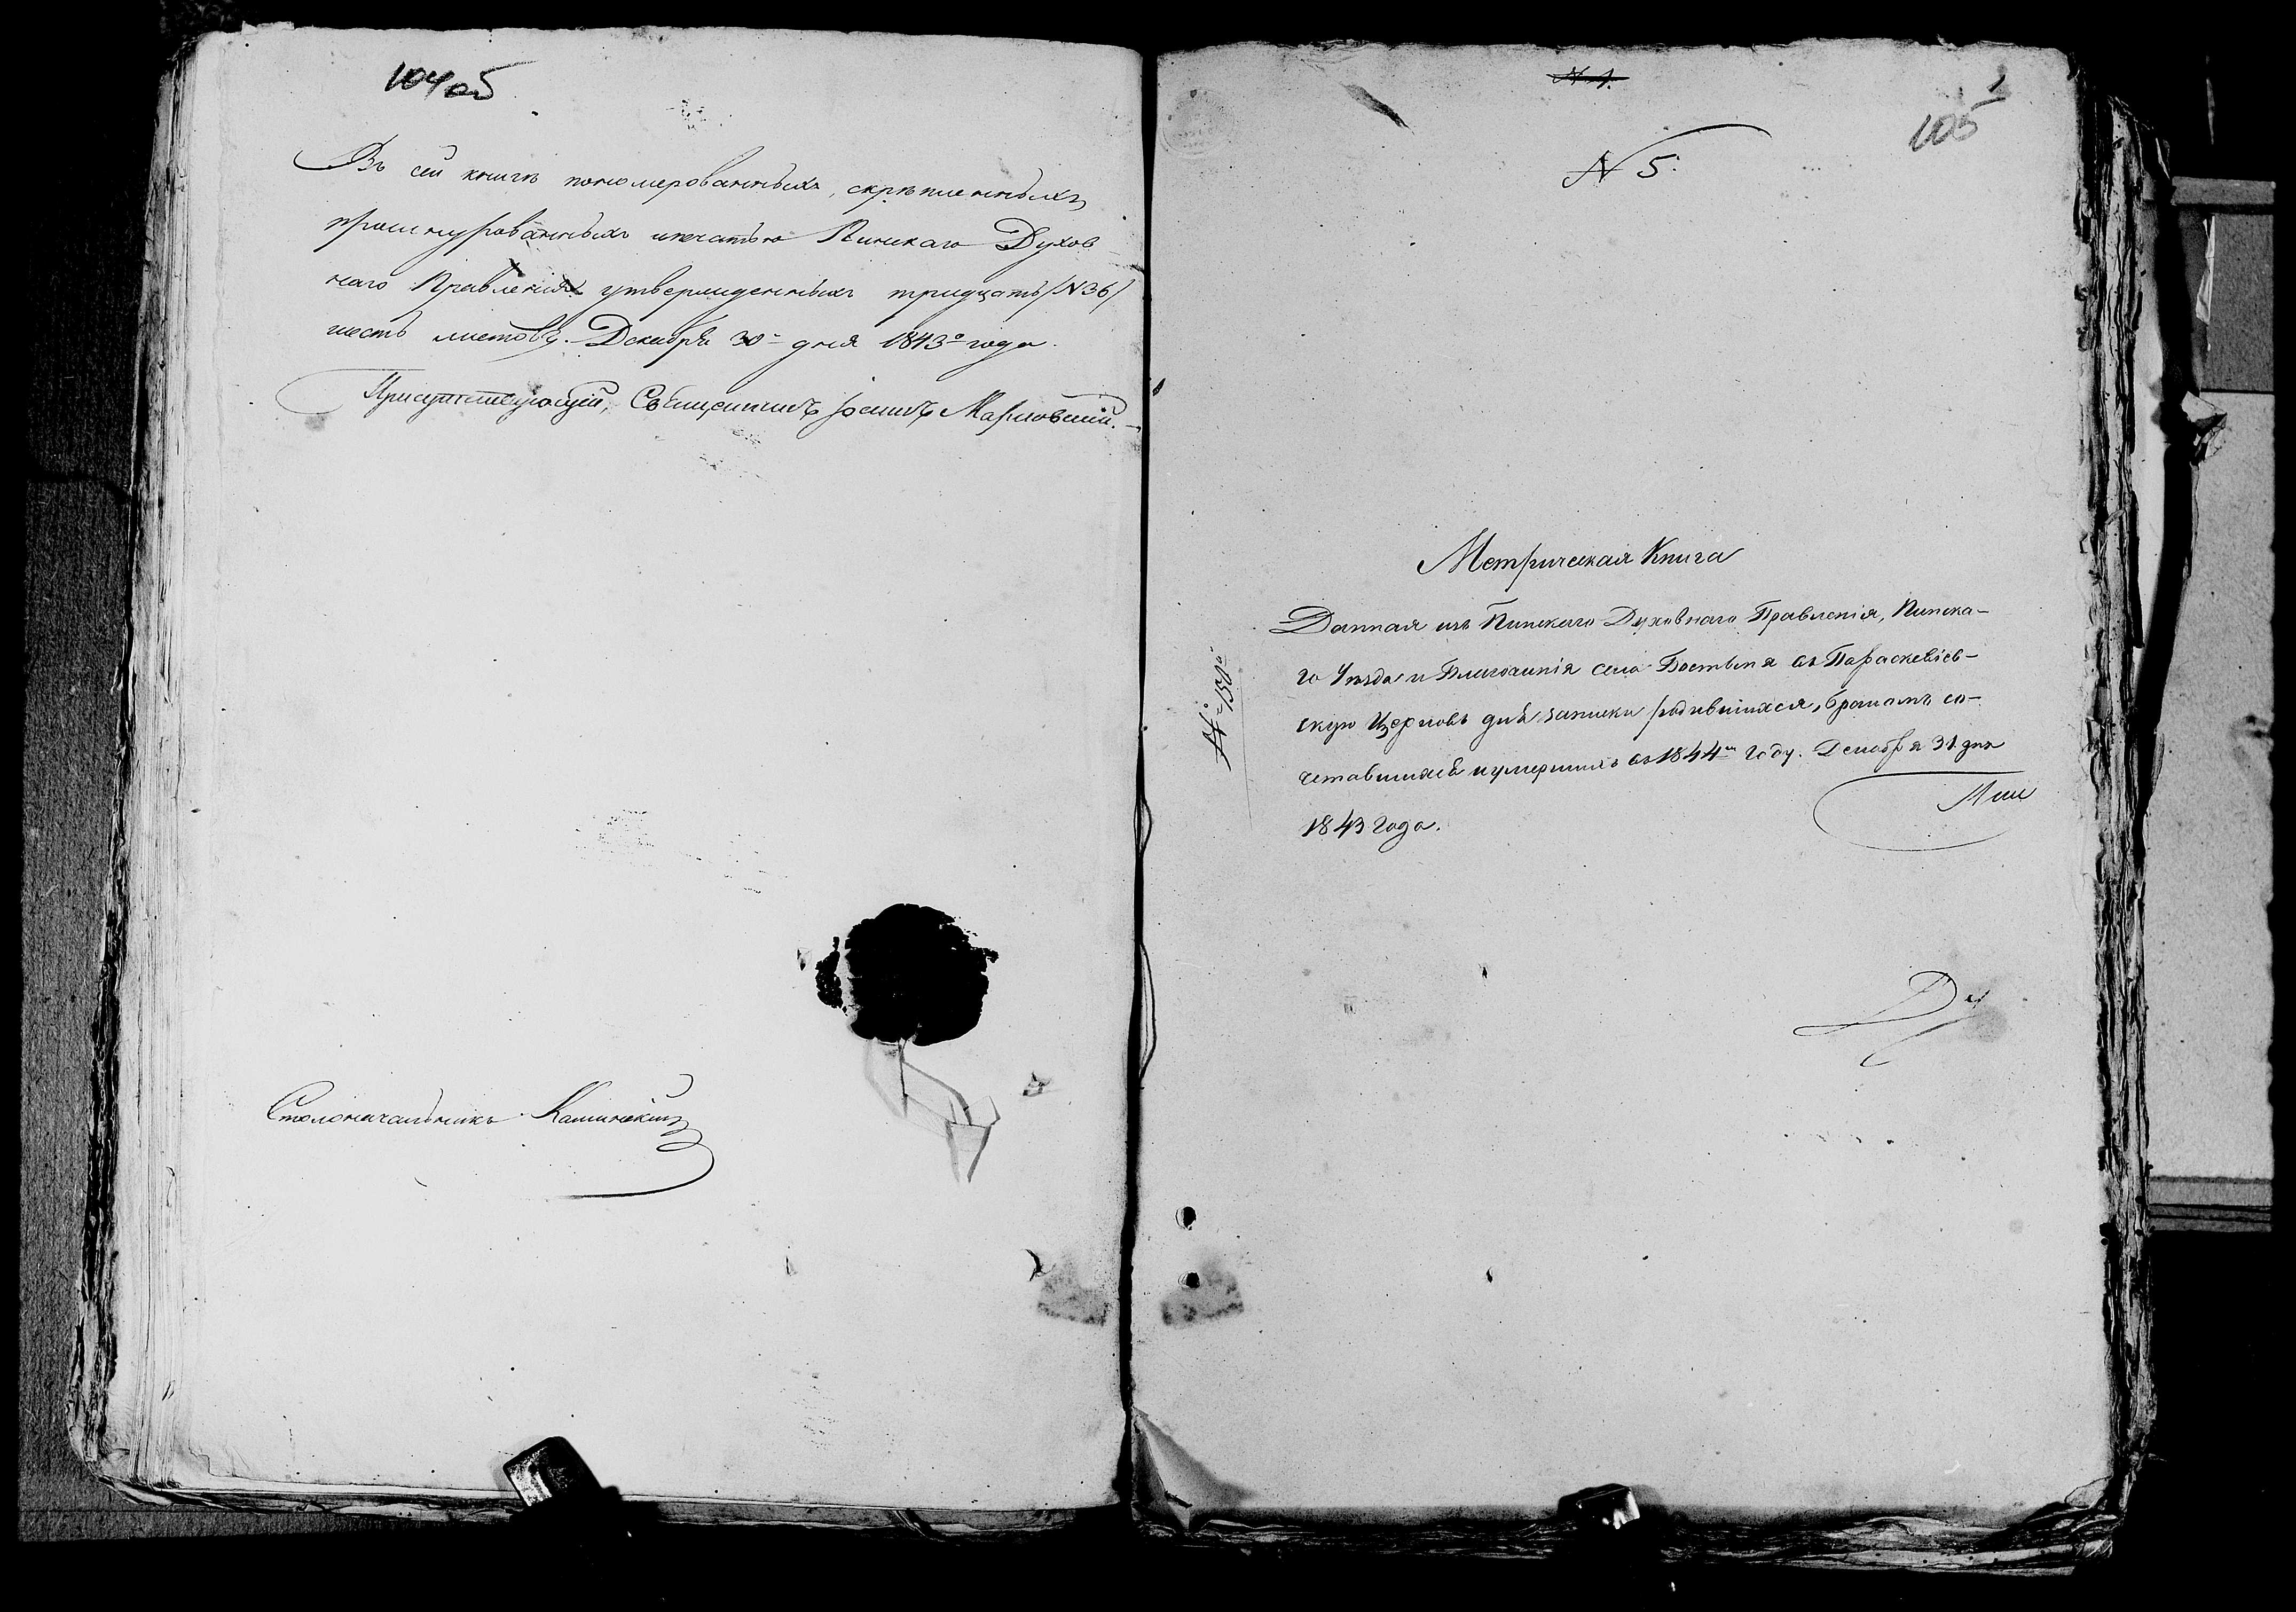 104 об
Въ сей книгѣ пономерованныхъ, скрѣпленныхъ
прошнурованныхъ и печатью Пинскаго Духов
наго Правленія утвержденныхъ тридцать /N 36/
шесть листовъ. Декабря 30 дня 1843 года.
Присутствующій, Священникъ
Столоначальникъ Каминскій
N 1.
1
105
N 5.
Метрическая Книга
Данная изъ Пинскаго Духовнаго Правленія, Пинска-
го Уѣзда и Благочинія села Бостыня въ Параскевіев-
скую Церковь для записки родившихся, бракомъ со-
четавшихся и умершихъ въ 1844 году. Декабря 31 дня
1843 года.